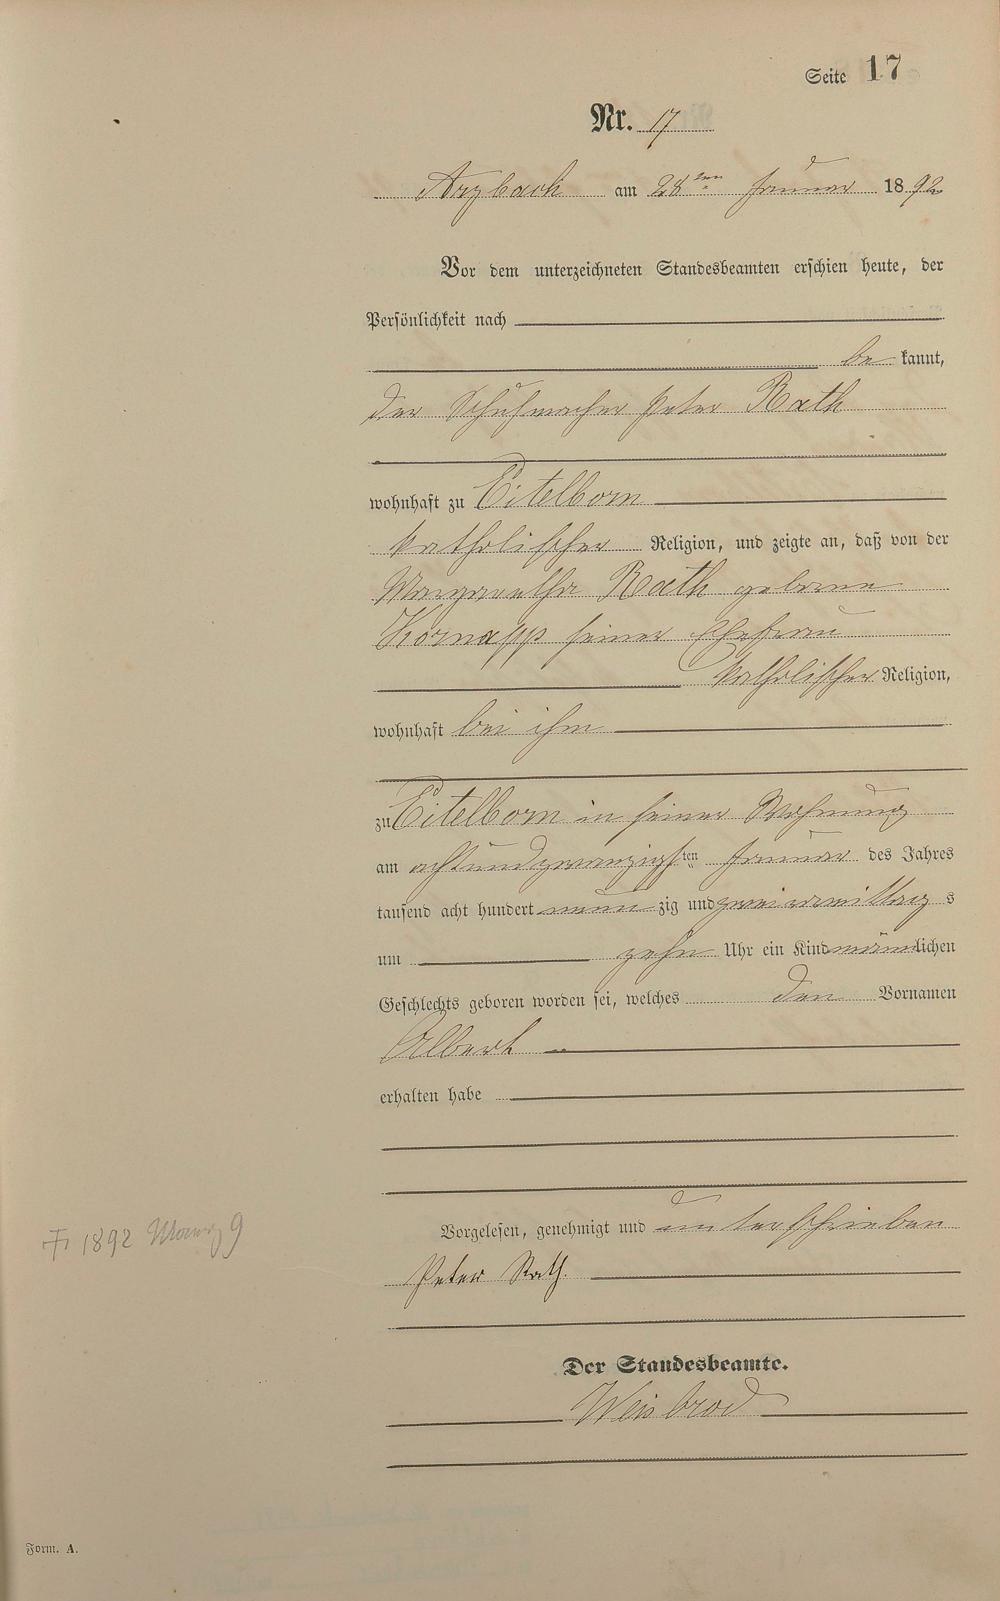 Seite 17
Nr. 17
Arzbach am 28ten Januar 1892
Vor dem unterzeichneten Standesbeamten erschien heute, der
Persönlichkeit nach
be kannt,
der Schuhmacher Peter Rath
wohnhaft zu Eitelborn
katholischer Religion, und zeigte an, daß von der
Margaretha Rath geborne
Hörnapp seiner Ehefrau
katholischer Religion,
wohnhaft bei ihm
zu Eitelborn in seiner Wohnung
am achtundzwanzigsten Januar des Jahres
tausend acht hundert neun zig und zwei vormittag s
um zehn Uhr ein Kind männlichen
Geschlechts geboren worden sei, welches den Vornamen
Albert
erhalten habe
Vorgelesen, genehmigt und unterschrieben
Peter Rath.
Der Standesbeamte.
Weisbrod
1892 9
Form. A.